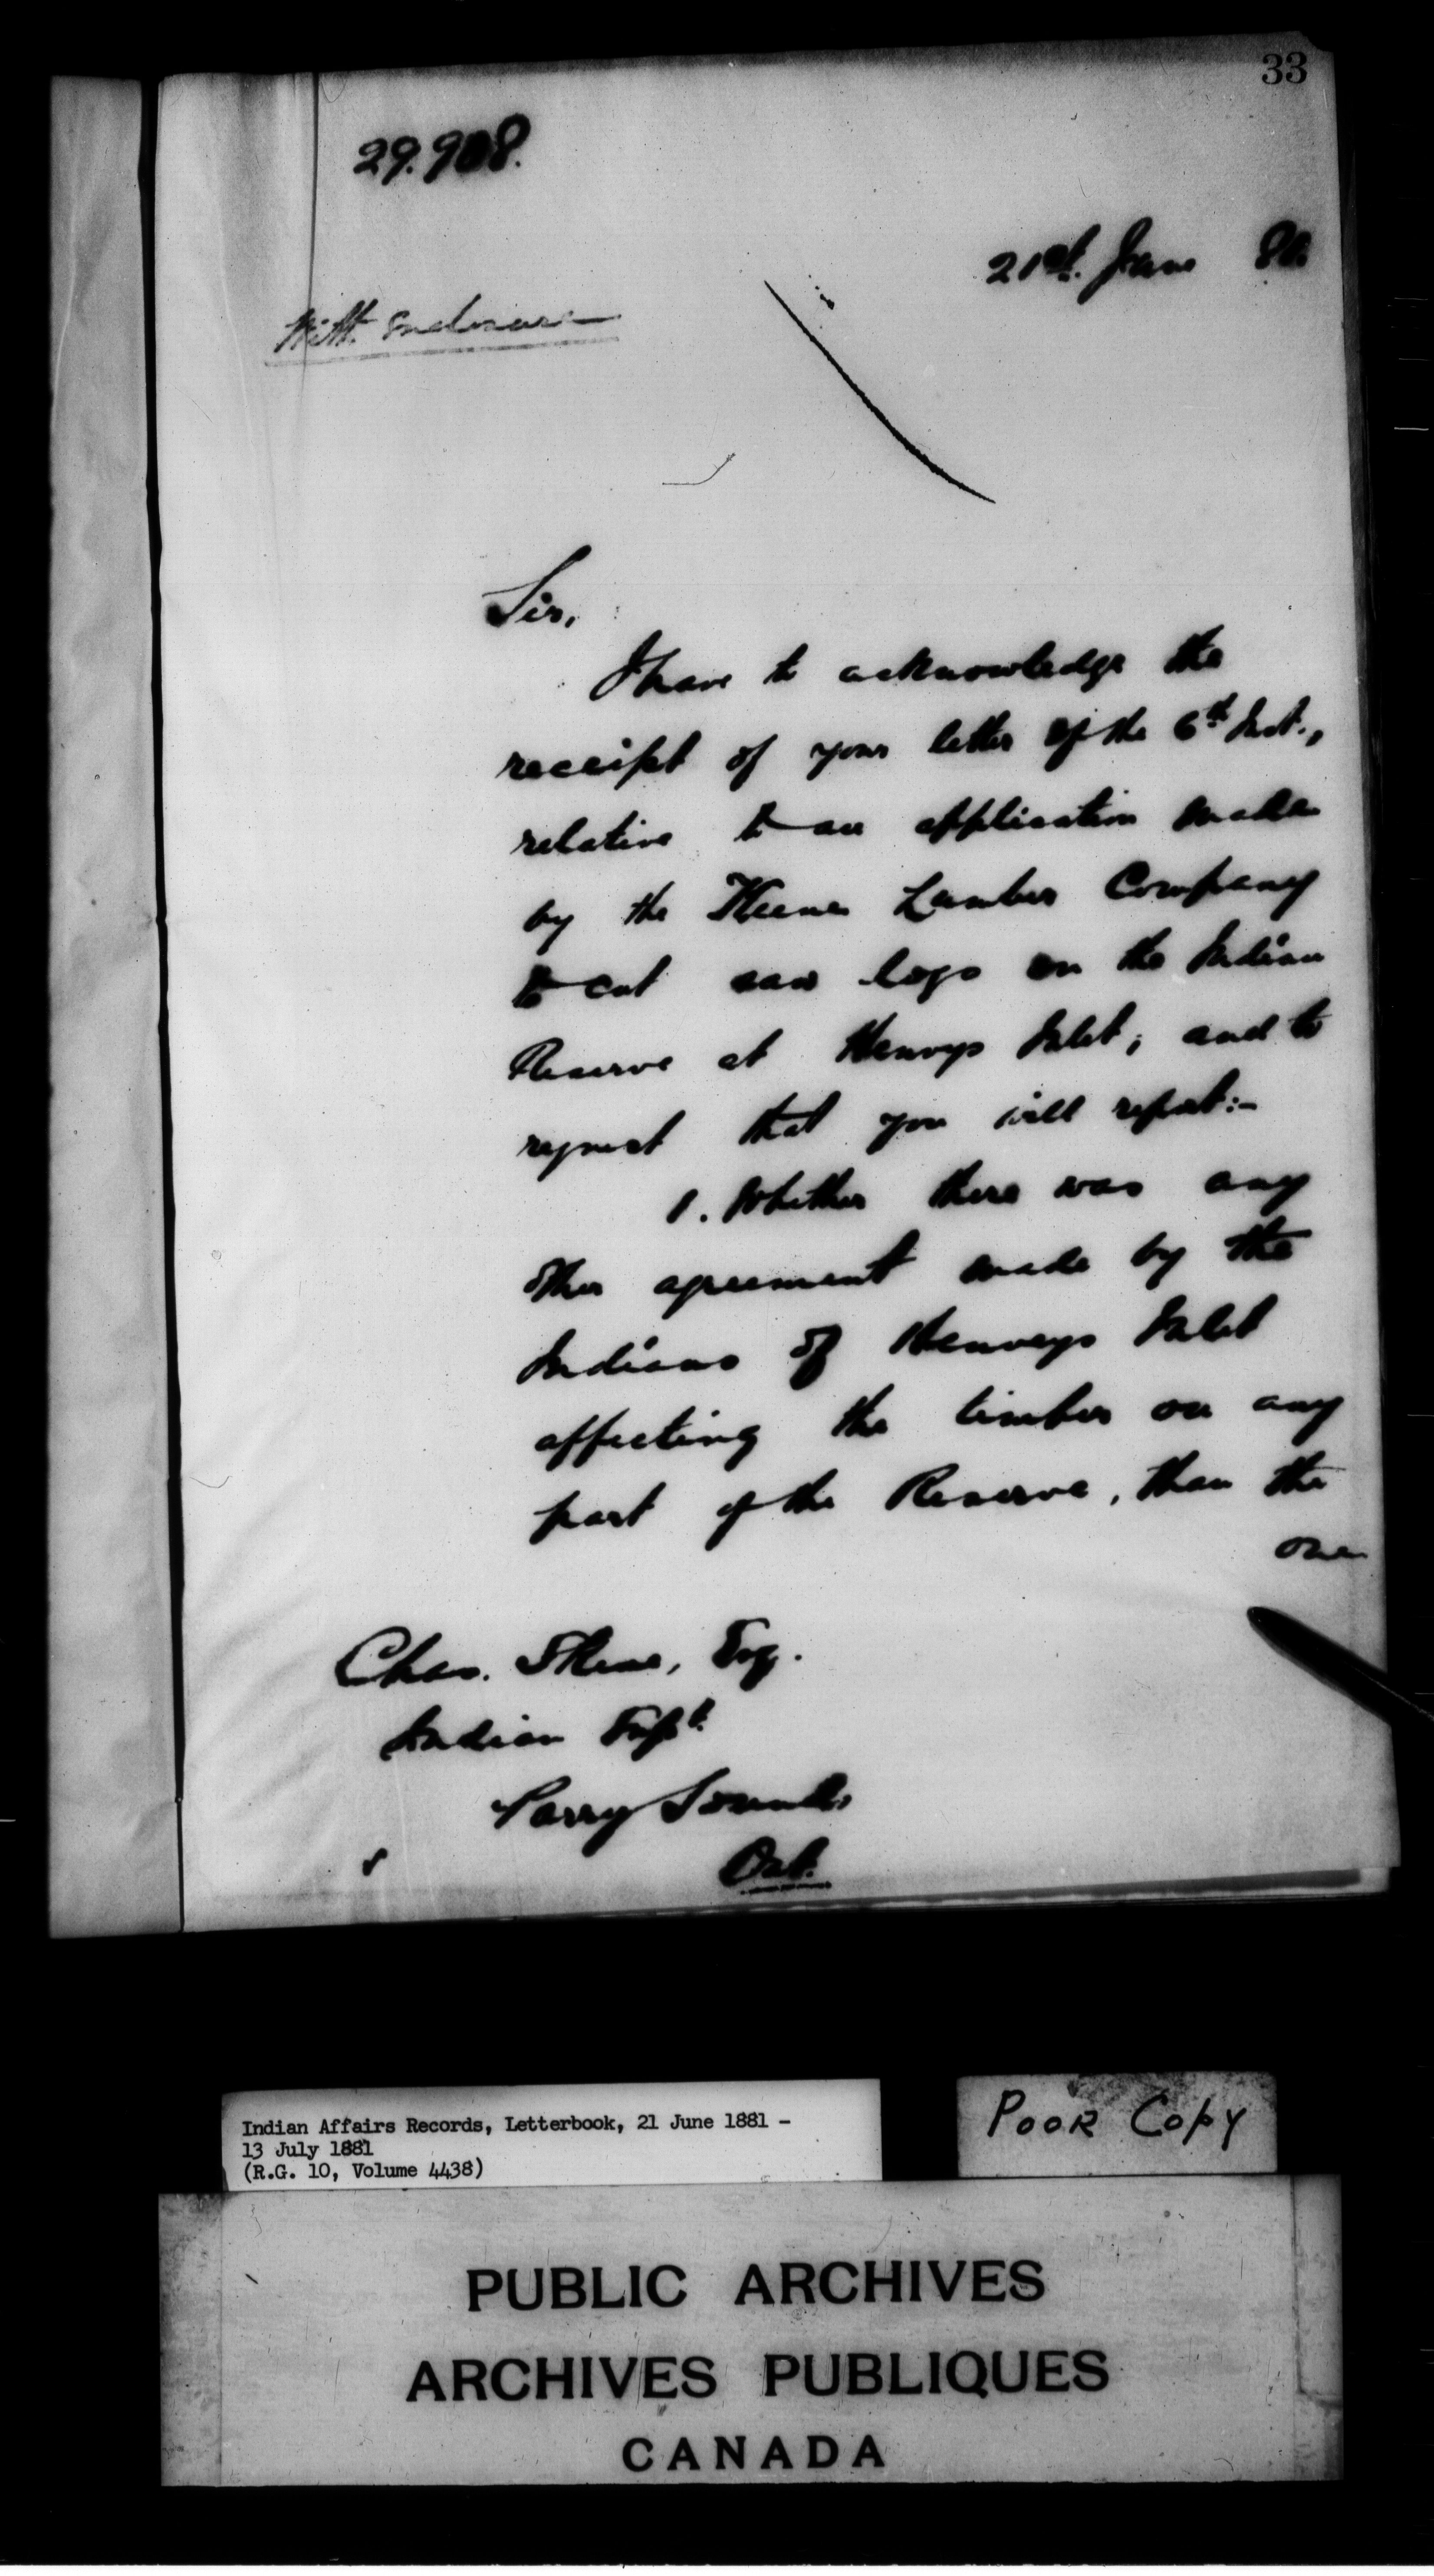 33
29.908.
21st. June 81.
With Enclosure
Sir,
I have to acknowledge the
receipt of your letter of the 6th Inst.,
relative to an application made
by the Keene Lumber Company
to cut saw logs on the Indian
Reserve at Henveys Inlet; and to
request that you will report:-
1. Whether there was any
other agreement made by the
Indians of Henveys Inlet
affecting the timber on any
part of the Reserve, than the
one
Chas. Skene, Esq.
Indian Supt.
Parry Sound,
Ont.
Indian Affairs Records, Letterbook, 21 June 1881 -
13 July 1881
(R.G. 10, Volume 4438)
POOR COPY
PUBLIC ARCHIVES
ARCHIVES PUBLIQUES
CANADA